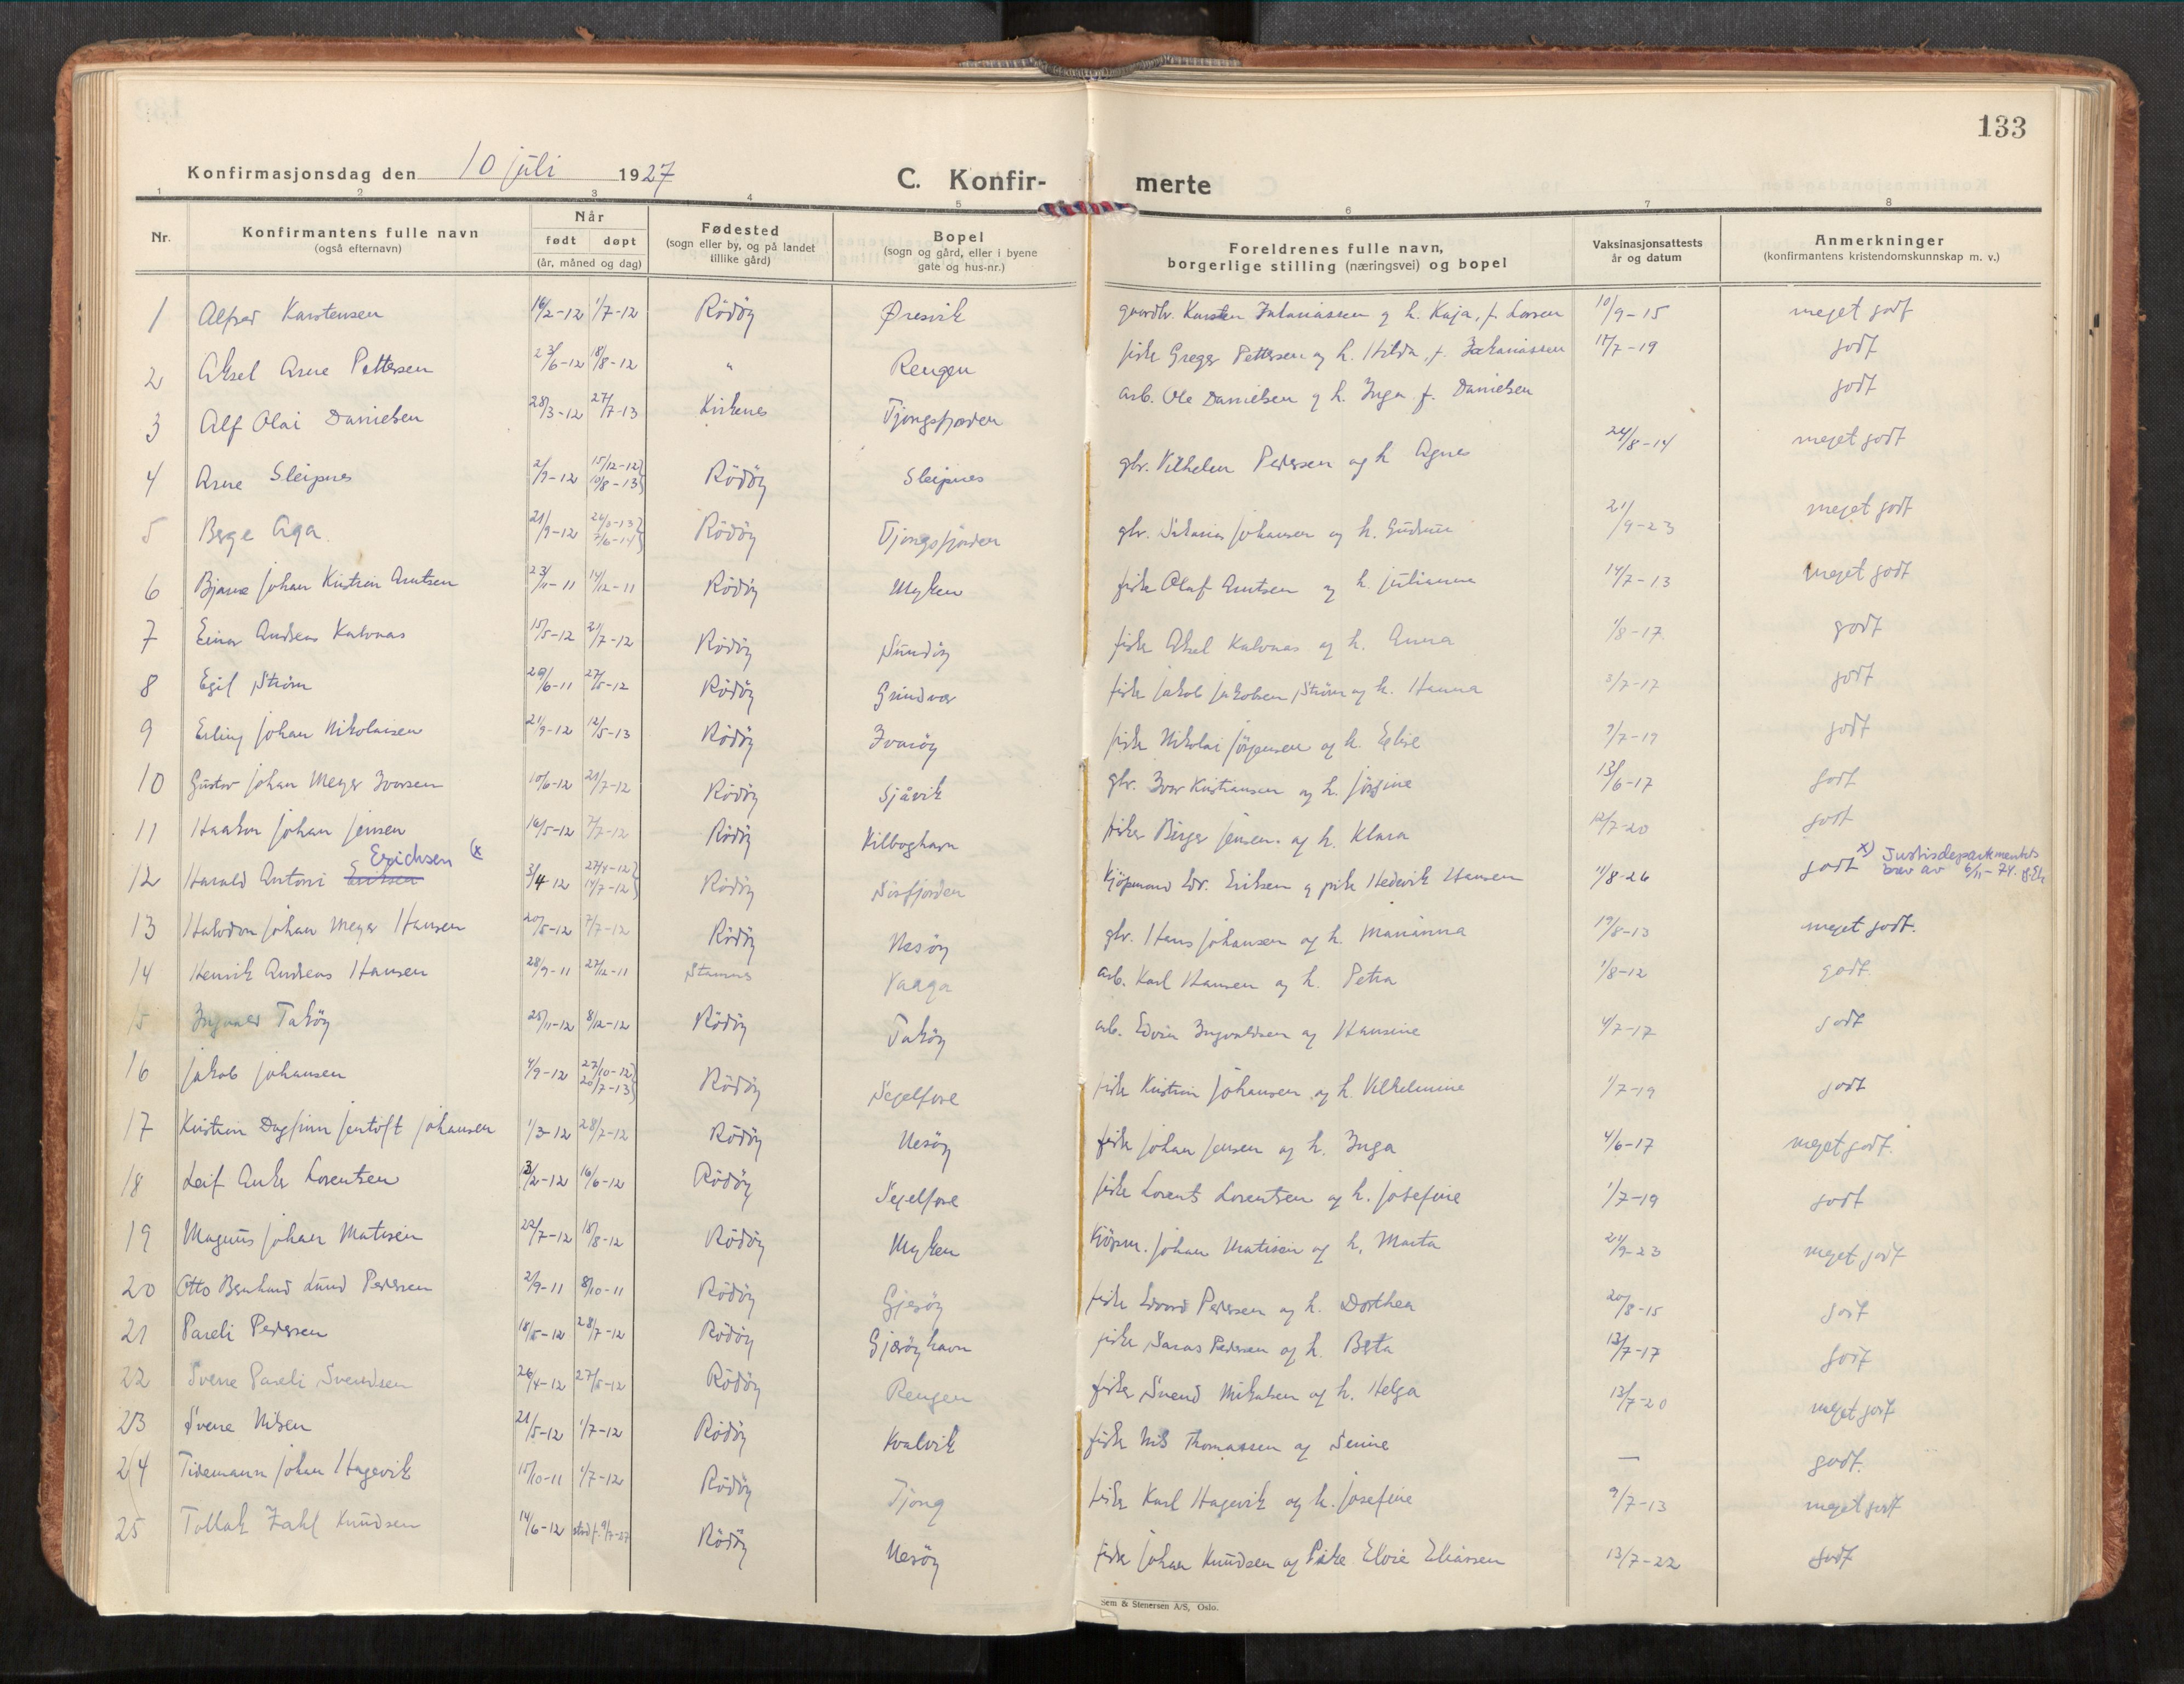 133
Konfirmasjonsdag den 10 juli 1927
C. Konfir- merte
1 2 3 4 5 6 7 8
Nr. Konfirmantens fulle navn (også efternavn) Når født døpt (år, måned og dag) Fødested (sogn eller by, og på landet tillike gård) Bopel (sogn og gård, eller i byene gate og hus-nr.) Foreldrenes fulle navn, borgerlige stilling (næringsvei) og bopel Vaksinasjonsattests år og datum Anmerkninger (konfirmantens kristendomskunnskap m. v.)
1 Alfred Karstensen 16/2-12 1/7-12 Rödöy Øresvik gaardbr. Karsten Zakariassen og h. Kaja, f. Larsen 10/9-15 meget godt
2 Aksel Arne Pettersen 23/6-12 18/8-12 " Rengen fisk Greger Pettersen og h. Hilda, f. Zakariassen 17/7-19 godt
3 Alf Olai Danielsen 28/3-12 27/7-13 Kirkenes Tjongsfjorden arb. Ole Danielsen og h. Inga f. Danielsen godt
4 Arne Sleipnes 2/9-12 15/12-12 10/8-13 Rödöy Sleipnes gbr. Vilhelm Pedersen og h Agnes 24/8-14 meget godt
5 Berge Aga. 21/9-12 7/6-14 Rödöy Tjongsfjorden gbr. Johansen og h. Gudrun 21/9-23 meget godt
6 Bjarne Johan Kristian Arntsen 23/11-11 14/12-11 Rödöy Myken fisk Olaf Arntsen og h. Julianna 14/7-13 meget godt
7 Einar Andreas Kalvnas 15/5-12 21/7-12 Rödöy Sundöy fisk Aksel Kalvnas og h. Anna 1/8-17 godt
8 Egil Ström 29/6-11 27/5-12 Rödöy Grindvar fisk Jakob Jakobsen Ström og h. Hanna 3/7-17 godt
9 Erling Johan Nikolaisen 21/9-12 12/5-13 Rödöy Ivaröy fisk Nikolai Jörgensen og h. Elise 7/7-19 godt
10 Gustav Johan Meyer Ivarsen 10/6-12 21/7-12 Rödöy Sjåvik gbr. Ivar Kristiansen og h. Jörgine 13/6-17 godt
11 Haakon Johan Jensen 16/5-12 7/7-12 Rödöy Kilboghavn fisker Birger Jensen. og h. Klara 12/7-20 godt
Erichsen (x
12 Harald Antoni Eriksen 3/4-12 27/4-12 14/7-12 Rödöy Kjöpmand Edv. Eriksen og pike Hedevik Hansen 11/8-26 godt x) Justisdepartementets
brev av 6/11-74.
13 Halvdan Johan Meyer Hansen 20/5-12 7/7-12 Rödöy Nesöy gbr. Hans Johansen og h. Marianna 19/8-13 meget godt.
14 Henrik Andreas Hansen 28/9-11 27/12-11 Stamnes Vaaga arb. Karl Hansen og h. Petra 1/8-12 godt.
15 Ingvald Taköy 25/11-12 8/12-12 Rödöy Taköy arb. Edvin Ingvaldsen og Hansine 4/7-17 godt
16 Jakob Johansen 4/9-12 27/10-12 20/7-13 Rödöy Segelfore fisk Kristian Johansen og h. Vilhelmine 1/7-19 godt
17 Kristian Dagfinn Jentoft Johansen 1/3-12 28/7-12 Rödöy Nesöy fisk Johan Jensen og h. Inga 4/6-17 meget godt.
18 Leif Anker Lorentsen 13/2-12 16/6-12 Rödöy Segelfore fisk Lorents Lorentsen og h. Josefine 1/7-19 godt
19 Magnus Johan Matisen 22/7-12 18/8-12 Rödöy Myken Kjöpm. Johan Matisen og h. Marta 21/9-23 meget godt
20 Otto Bernhard Lund Pedersen 2/9-11 8/10-11 Rödöy Gjesöy fisk Edvard Pedersen og h. Dorthea 20/8-15 godt
21 Pareli Pedersen 18/5-12 28/7-12 Rödöy Gjeröyhavn fisk Pedersen og h. Berta 13/7-17 godt
22 Sverre Pareli Svendsen 26/4-12 27/5-12 Rödöy Rengen fisker Svend Mikalsen og h. Helga 13/7-20 meget godt
23 Sverre Nilsen 21/5-12 1/7-12 Rödöy Kvalvik fisk Nils Thomassen og Senine — godt.
24 Tidemann Johan Hagevik 15/10-11 1/7-12 Rödöy Tjong fisk Karl Hagevik og h. Josefine 9/7-13 meget godt
25 Tollak Zahl Knudsen 14/6-12 stadf. 9/7-27 Rödöy Nesöy fisk Johan Knudsen og Pike Elvie Eliassen 13/7-22 godt
Sem & Stenersen A/S, Oslo.